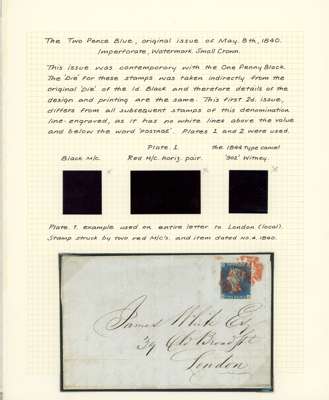 The Two Pence Blue, original issue of May 8th, 1840.
Imperforate, Watermark Small Crown.
This issue was contemporary with the One Penny Black.
The 'Die' for these stamps was taken indirectly from the
original 'die' of the 1d. Black and therefore details of the
design and printing are the same. This first 2d. issue,
differs from all subsequent stamps of this denomination
line-engraved, as it has no white lines above the value
and below the word 'POSTAGE'. Plates 1 and 2 were used.
Plate 1. the 1844 type cancel
Black M/c. Red M/c. horiz. pair. '902' Witney.
Plate 1. example used on entire letter to London (local).
Stamp struck by two red M/c's. and item dated
James White Esq
39 Old Broad St
London